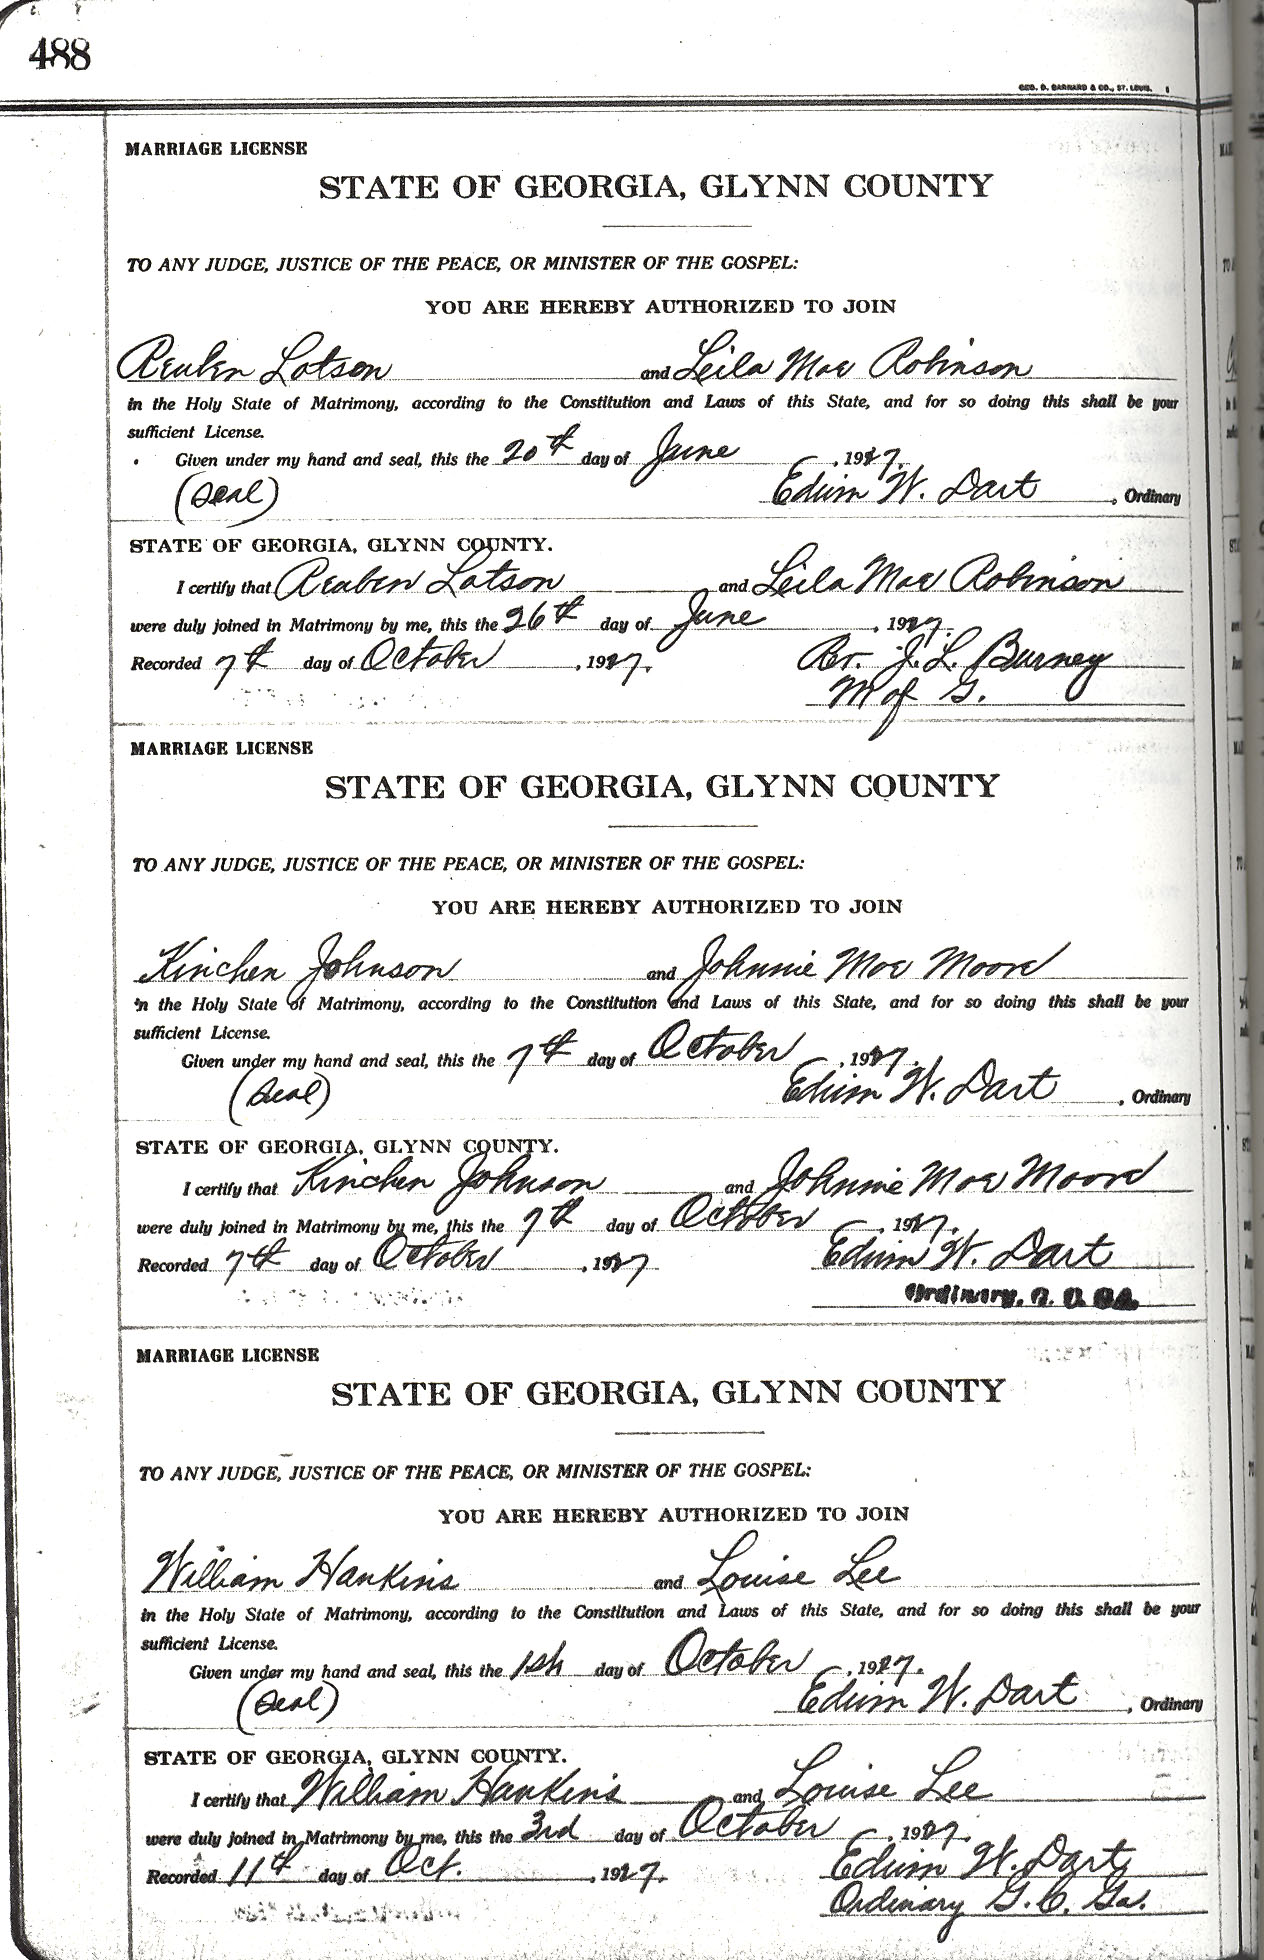 488
GEO. D. BARNARD & CO., ST. LOUIS.
MARRIAGE LICENSE
STATE OF GEORGIA, GLYNN COUNTY
TO ANY JUDGE, JUSTICE OF THE PEACE, OR MINISTER OF THE GOSPEL:
YOU ARE HEREBY AUTHORIZED TO JOIN
Reuben Lotson and Leila Mae Robinson
in the Holy State of Matrimony, according to the Constitution and Laws of this State, and for so doing this shall be your
sufficient License.
Given under my hand and seal, this the 20th day of June, 1927.
(Seal) Edwin W. Dart, Ordinary
STATE OF GEORGIA, GLYNN COUNTY.
I certify that Reuben Lotson and Leila Mae Robinson
were duly joined in Matrimony by me, this the 26th day of June, 1927.
Recorded 7th day of October, 1927. Rev. J. L. Burney
M of G.
MARRIAGE LICENSE
STATE OF GEORGIA, GLYNN COUNTY
TO ANY JUDGE, JUSTICE OF THE PEACE, OR MINISTER OF THE GOSPEL:
YOU ARE HEREBY AUTHORIZED TO JOIN
Kinchen Johnson and Johnnie Mae Moore
in the Holy State of Matrimony, according to the Constitution and Laws of this State, and for so doing this shall be your
sufficient License.
Given under my hand and seal, this the 7th day of October, 1927.
(Seal) Edwin W. Dart, Ordinary
STATE OF GEORGIA, GLYNN COUNTY.
I certify that Kinchen Johnson and Johnnie Mae Moore
were duly joined in Matrimony by me, this the 7th day of October, 1927.
Recorded 7th day of October, 1927 Edwin W. Dart
Ordinary, G. C. Ga.
MARRIAGE LICENSE
STATE OF GEORGIA, GLYNN COUNTY
TO ANY JUDGE, JUSTICE OF THE PEACE, OR MINISTER OF THE GOSPEL:
YOU ARE HEREBY AUTHORIZED TO JOIN
William Hankins and Louise Lee
in the Holy State of Matrimony, according to the Constitution and Laws of this State, and for so doing this shall be your
sufficient License.
Given under my hand and seal, this the 1st day of October, 1927.
(Seal) Edwin W. Dart, Ordinary
STATE OF GEORGIA, GLYNN COUNTY.
I certify that William Hankins and Louise Lee
were duly joined in Matrimony by me, this the 3rd day of October, 1927.
Recorded 11th day of Oct., 1927. Edwin W. Dart,
Ordinary G. C. Ga.